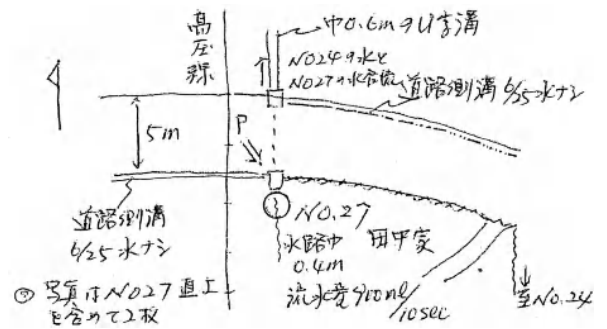 高圧線
巾0.6mのU字溝
NO24の水と
NO27の水合流
道路側溝 6/25水ナシ
5m
P
道路側溝
6/25水ナシ
NO.27
水路巾
0.4m
田中家
流水量 910ml/10sec
至NO.24
写真はNO27直上
を含めて2枚